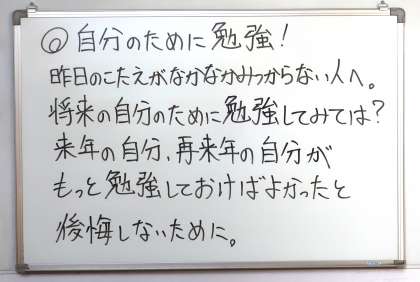 ◎自分のために勉強！
昨日のこたえがなかなかみつからない人へ。
将来の自分のために勉強してみては？
来年の自分、再来年の自分が
もっと勉強しておけばよかったと
後悔しないために。